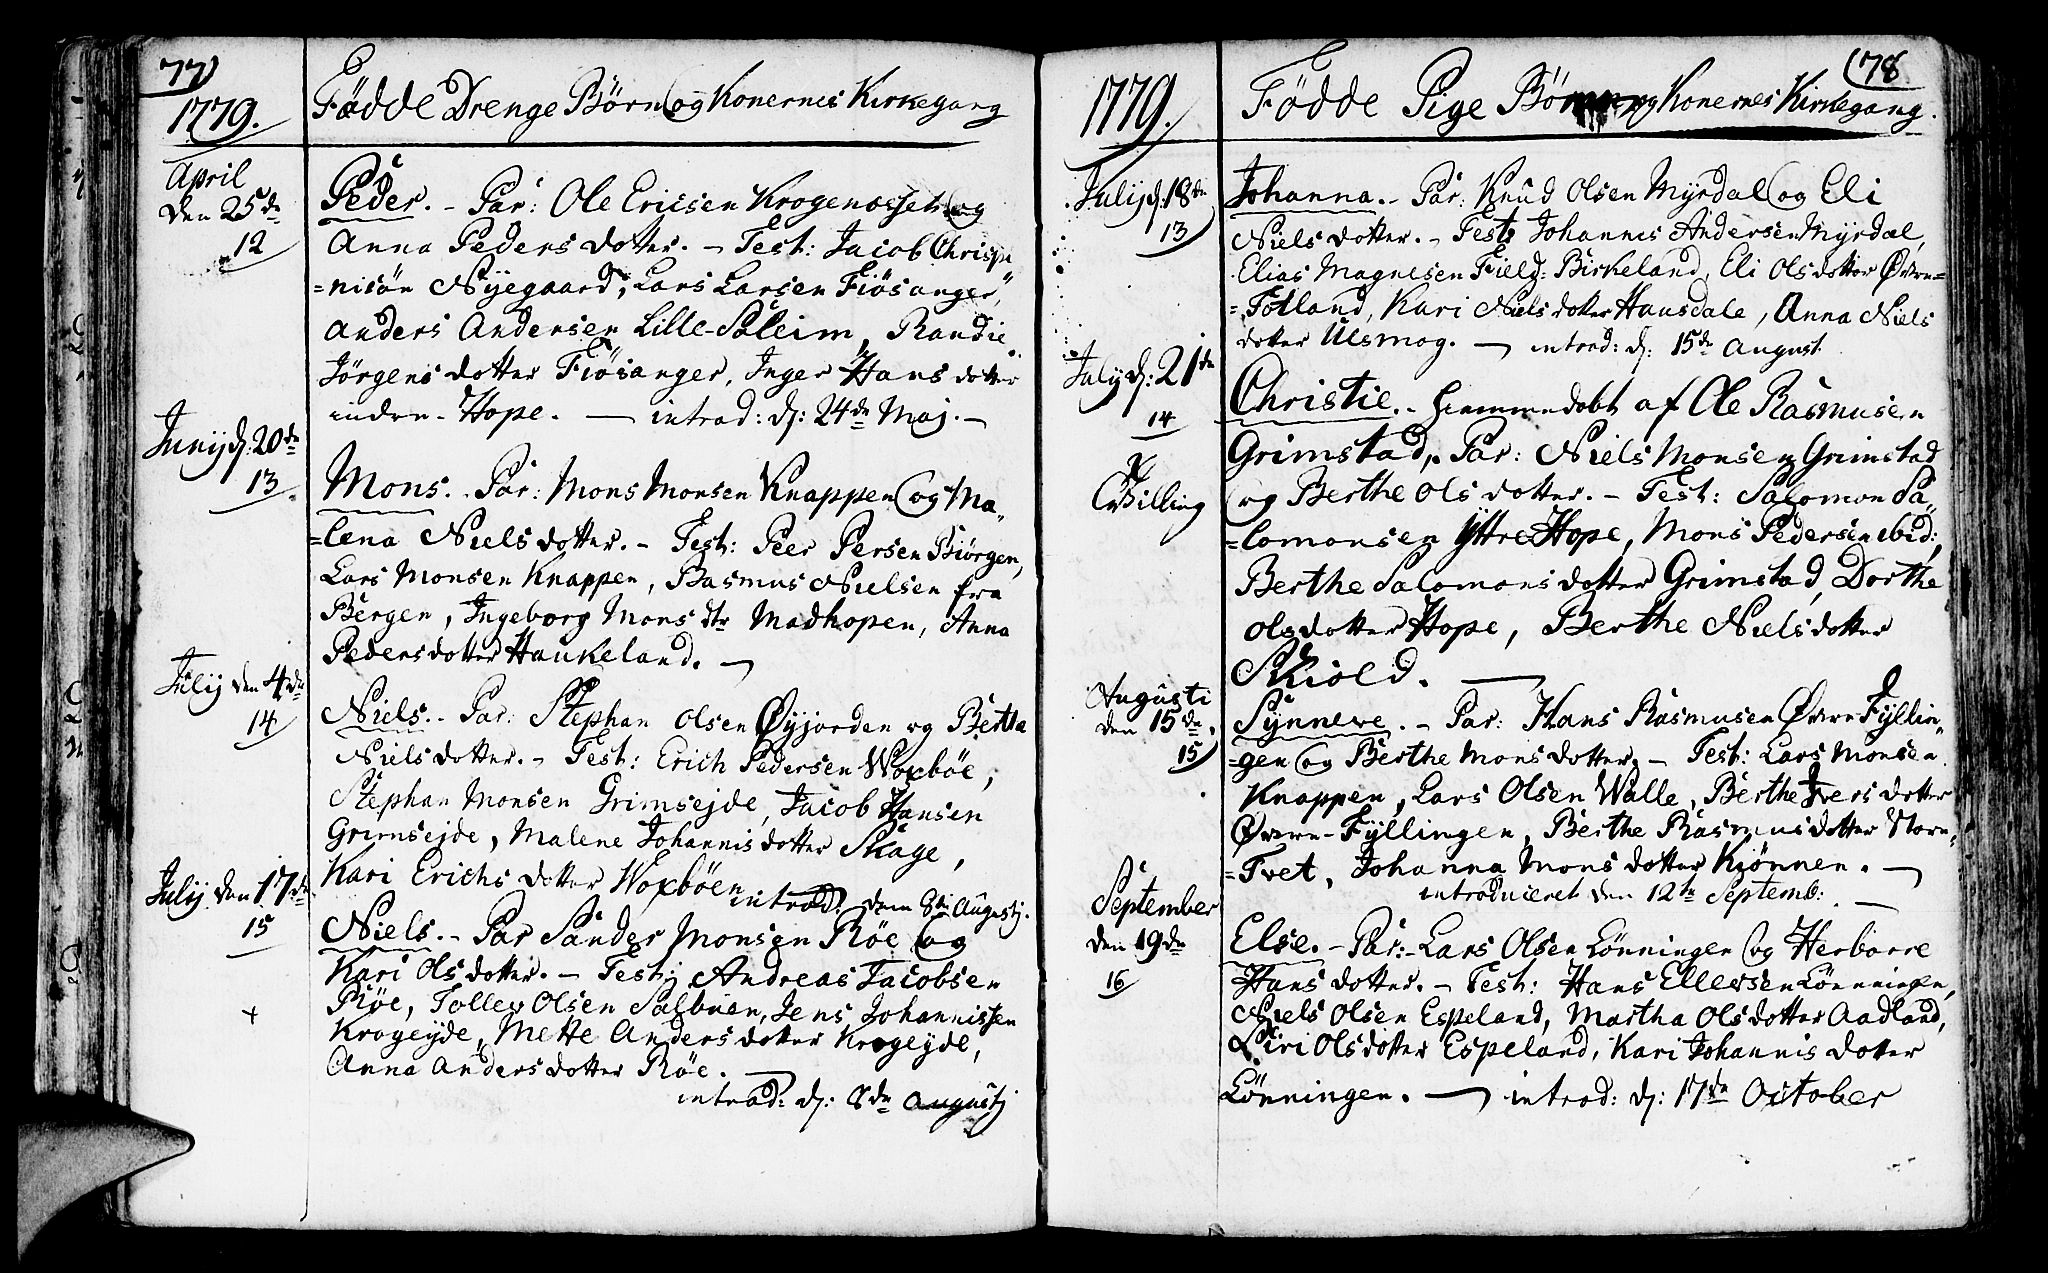 77)
1779.
Födde Drenge Börn og Konernes Kirkegang
April
den 25de
12
Peder. - Par: Ole Ericsen Krogenæsset og
Anna Peders dotter. - Test: Jacob Christi
=nisön Nyegaard, Lars Larsen Fiösanger,
Anders Andersen Lille-Söleim, Randie
Jörgens dotter Fiösanger, Inger Hans dotter
indre-Hope. - introd: d: 24de Maj. -
Junij d: 20de
13.
Mons. - Par: Mons Monsen Knappen og Ma,,
=lena Niels dotter. - Test: Peer Persen Biörgen,
Lars Monsen Knappen, Rasmus Nielsen fra
Bergen, Ingeborg Mons dtr Madhopen, Anna
Peders dotter Haukeland. -
Julij den 4de
14
Niels. - Par: Stephan Olsen Øyjorden og Bertha
Niels dotter. - Test: Erich Pedersen Woxböe,
Stephan Monsen Grimsejde, Jacob Hansen
Grimsejde, Malene Johannis dotter Skage,
Kari Erichs dotter Woxböen
introd: den 8de Augustj.
Julij den 17de
15
+
Niels. - Par Sander Monsen Röe og
Kari Ols dotter. - Testj Andreas Jacobsen
Röe, Tollev Olsen Sælbuen, Jens Johannissen
Krogeyde, Mette Anders dotter Krogejde,
Anna Anders dotter Röe. -
introd: d: 8de Augustj
(78
1779.
Födde Pige Börn og Konernes Kirkegang.
Julij d: 18de
13
Johanna. - Par: Knud Olsen Myrdal og Eli
Niels dotter. - Test: Johannes Andersen Myrdal,
Elias Magnesen Field: Birkeland, Eli Ols dotter Øvre=
=Totland, Kari Niels dotter Hausdale, Anna Niels
dotter Ulsmog. - introd: d: 15de August.
Julij d: 21de
14
Gilling
Christie. - hiemmedöbt af Ole Rasmusen
Grimstad, Par: Niels Monsen Grimstad
og Berthe Ols dotter. - Test: Salomon Sa,,
=lomonsen Yttre Hope, Mons Pedersen ibid:,
Berthe Salomons dotter Grimstad, Dorthe
Ols dotter Hope, Berthe Niels dotter
Skiold. -
Augusti
den 15de,
15
Synneve. - Par: Hans Rasmusen Øvre Fyllin,,
=gen og Berthe Mons dotter, - Test: Lars Monsen
Knappen, Lars Olsen Walle, Berthe Ivers dotter
Øvre-Fyllingen, Berthe Rasmus dotter Store,,
=Tvet, Johanna Mons dotter Kjönnen. -
introduceret den 12te Septemb: -
September
den 19de
16
Else. - Par: Lars Olsen Lönningen og Herborre
Hans dotter. - Test: Hans Ellersen Lönningen,
Niels Olsen Espeland, Martha Ols dotter Aadland,
Siri Ols dotter Espeland, Kari Johannis dotter
Lönningen. - introd: d: 17de October